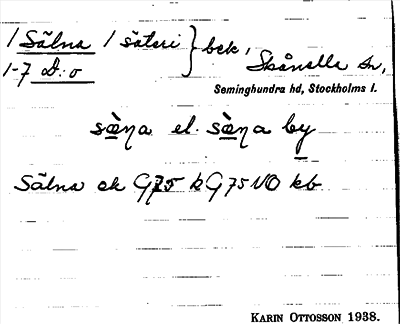 1 Sälna 1 säteri } bek.,
1-7 D:o Skånella sn,
Seminghundra hd, Stockholms l.
sæ̀ƞa el. sæ̀ƞa by
Sälna ek G75 k G75NO kb
KARIN OTTOSSON 1938.